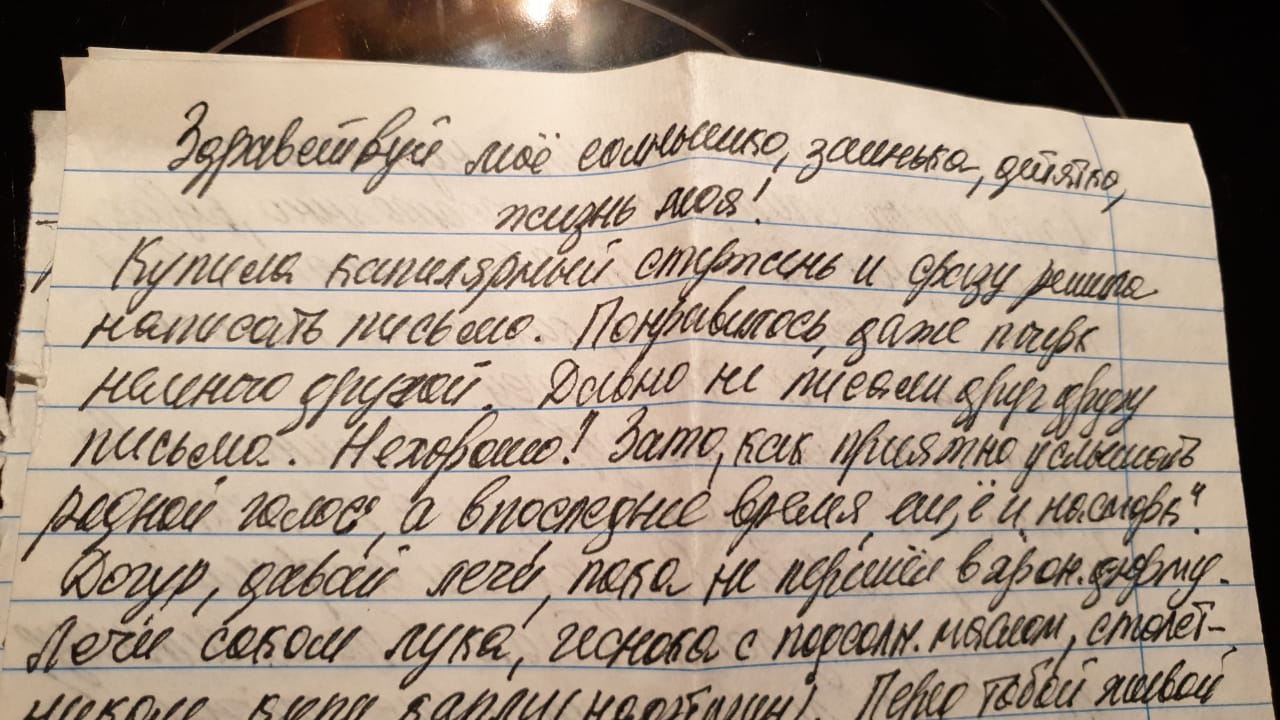 Здравствуй моё солнышко, заинька, дитятко,
жизнь моя!
Купила капилярный стержень и сразу решила
написать письмо. Понравилось, даже почерк
немного другой. Давно не писали друг другу
письма. Нехорошо! Зато, как приятно услышать
родной голос, а в последнее время, ещё и насморк".
давай лечи, пока не перешёл в хрон. форму.
Лечи соком лука, чеснока с подсолн. маслом, столет-
ником, купи капли (нафтизин). Перед тобой живой